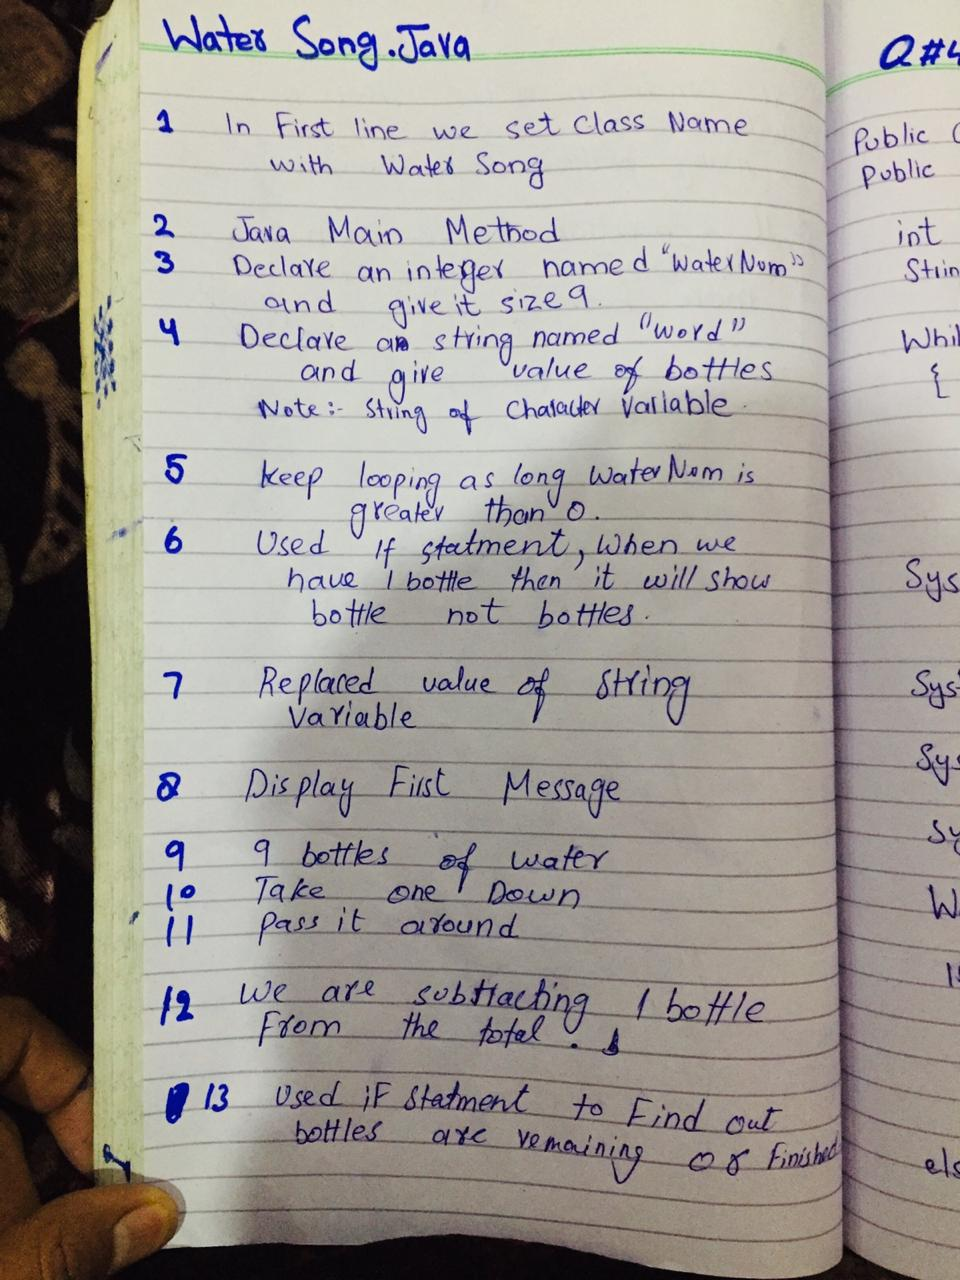 Water Song.Java
1 In First line we set Class Name
with Water Song
2 Java Main Method
3 Declare an integer named "WaterNum"
and give it size 9.
4 Declare an string named "word"
and give value of bottles
Note:- String of Character Variable.
5 Keep looping as long WaterNum is
greater than 0.
6 Used If statment, when we
have 1 bottle then it will show
bottle not bottles.
7 Replaced value of String
Variable
8 Display First Message
9 9 bottles of water
10 Take one Down
11 Pass it around
12 We are subtracting 1 bottle
From the total.
13 Used iF Statment to Find out
bottles are remaining or Finished
Q#4
Public
Public
int
Strin
Whil
{
Sys
Sys
Sys
Sy
W
els